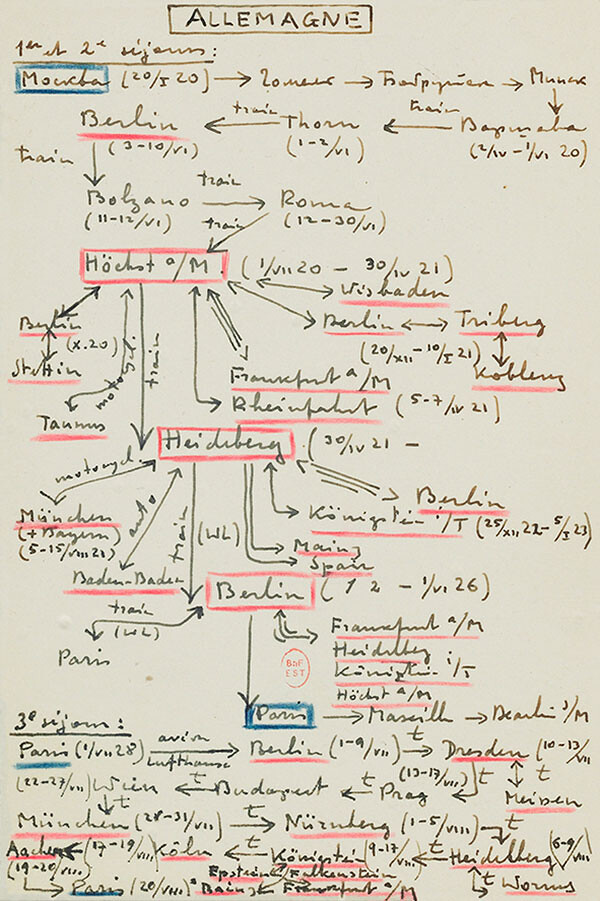 ALLEMAGNE
1er et 2e séjours :
Москва (20/I 20) → Гомель → Бобруйск → Минск
Berlin ← train Thorn ← train Варшава
(3-10/VI) (1-2/VI) (2/IV - 1/VI 20)
train
Bolzano train → Roma
(11-12/VI) train (12-30/VI)
Höchst a/M. (1/VII 20 - 30/IV 21)
Wisbaden
Berlin Berlin ↔ Triberg
(X.20) (20/XII - 10/I 21)
Stettin Koblenz
motocycl. train
Frankfurt a/M
Taunus Rheinfahrt (5-7/IV 21)
Heidelberg (30/IV 21 -
motocycl.
Berlin
München auto train (WL) Königstein i/T (25/XII 22 - 5/I 23)
(+ Bayern)
(5-15/VIII 21) Mainz
Baden-Baden Spain
train Berlin ( 2 - 1/VI 26)
(WL)
Paris Frankfurt a/M
Heidelberg
BnF
EST
Königstein i/T
Höchst a/M
Paris → Marseille → Berlin
3e séjour :
Paris (1/VII 28) avion Lufthansa → Berlin (1-9/VII) t → Dresden (10-13/VII)
(22-27/VII) Wien ← t Budapest ← t Prag (13-17/VII) t t
t Meissen
München (28-31/VII) t → Nürnberg (1-5/VIII) t
Aachen ← (17-19/VIII) Köln ← t Königstein (9-17/VIII) ← t Heidelberg (6-9/VIII)
(19-20/VIII) Epstein Falkenstein t Worms
Paris (20/VIII) Frankfurt a/M